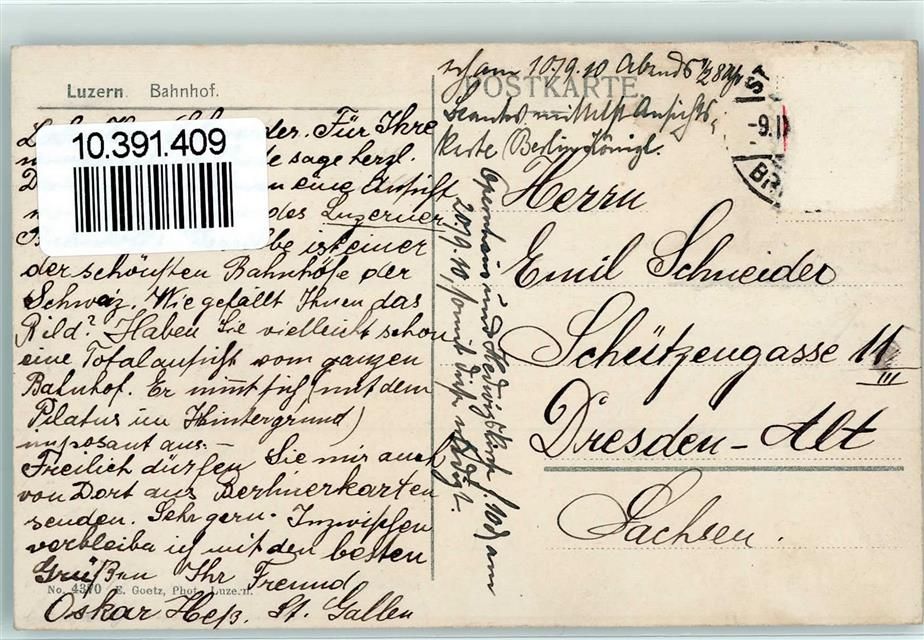 Luzern. Bahnhof.
POSTKARTE.
10.391.409
der. Für Ihre
sage herzl.
eine Ansicht
des Luzerner
ist einer
der schönsten Bahnhöfe der
Schweiz. Wie gefällt Ihnen das
Bild? Haben Sie vielleicht schon
eine Totalansicht vom ganzen
Bahnhof. Er nimmt sich (mit dem
Pilatus im Hintergrund)
imposant aus. —
Freilich dürfen Sie mir auch
von Dort aus Berlinerkarten
senden. Sehr gern. Inzwischen
verbleibe ich mit den besten
Grüßen Ihr Freund
Oskar Heß. St. Gallen
No. 4370 E. Goetz, Phot. Luzern.
10./9.10 Abends 1/2 8 Uhr
mittelst Ansichts-
karte (Berlin Königl.
Opernhaus und Hedwigskirche)
20./9.10
-9.
BR
Herrn
Emil Schneider
Schützengasse 11
III
Dresden-Alt
Sachsen.